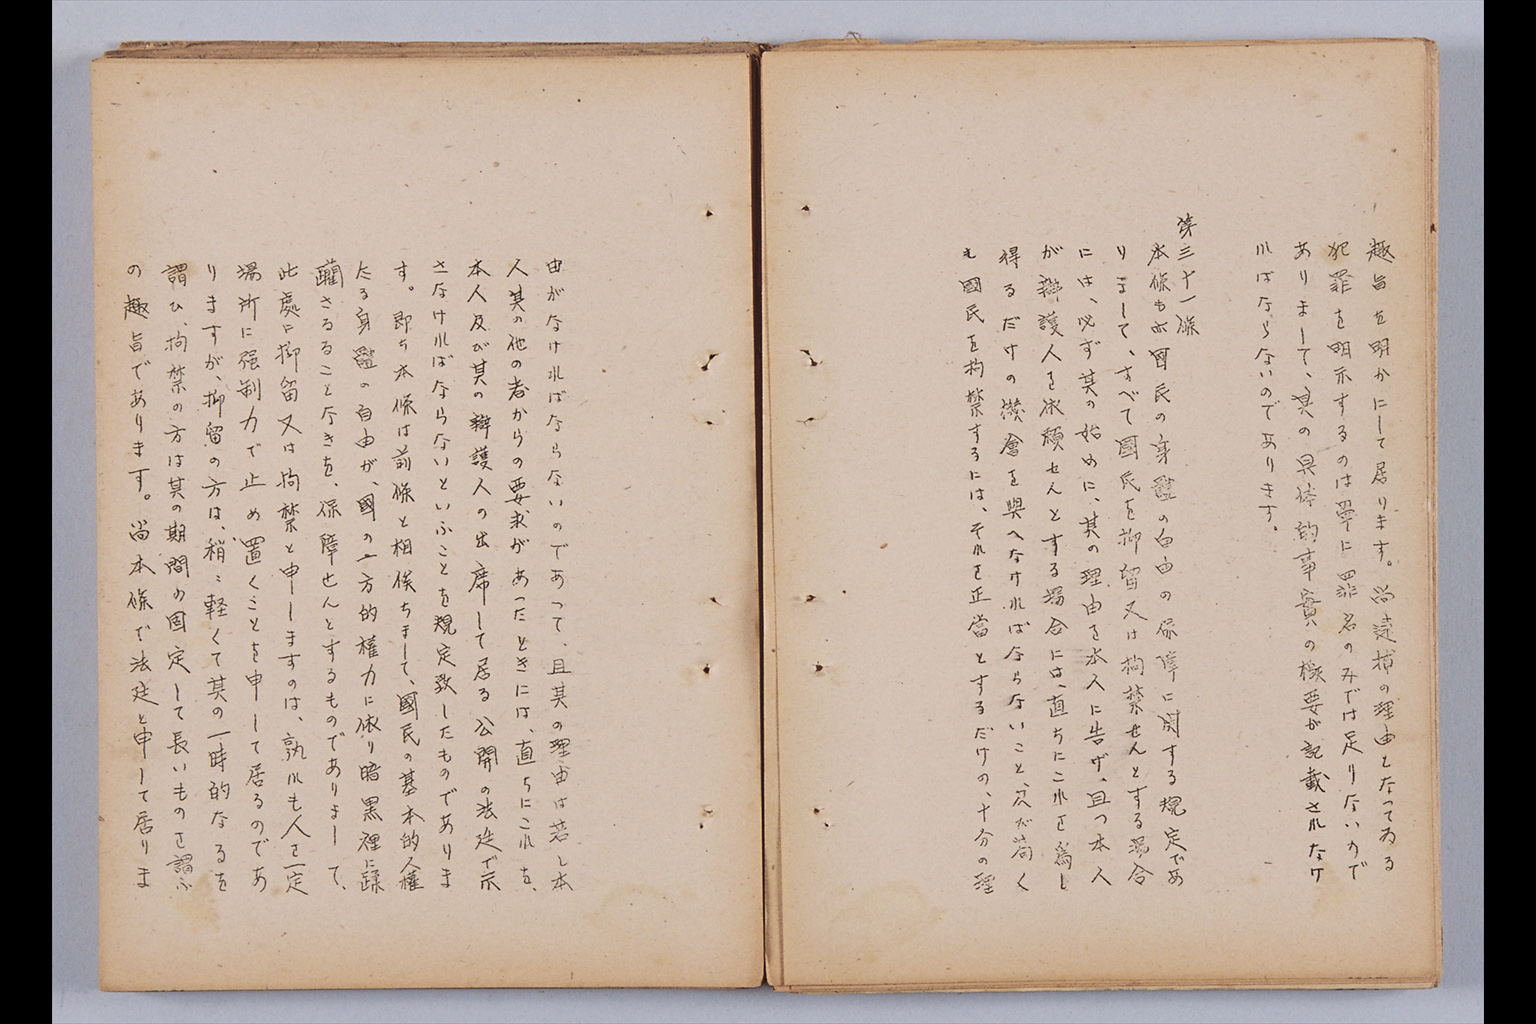 趣旨を明かにして居ります。尚逮捕の理由となつてゐる
犯罪を明示するのは單に罪名のみでは足りないので
ありまして、其の具体的事實の概要が記載されなけ
ればならないのであります。
第三十一條
本條も亦國民の身軆の自由の保障に関する規定であ
りまして、すべて國民を抑留又は拘禁せんとする場合
には、必ず其の始めに、其の理由を本人に告げ、且つ本人
が辯護人を依頼せんとする場合には、直ちにこれを爲し
得るだけの機會を與へなければならないこと、及び苟く
も國民を拘禁するには、それを正當とするだけの、十分の理
由がなければならないのであつて、且其の理由は若し本
人其の他の者からの要求があつたときには、直ちにこれを、
本人及び其の辯護人の出席して居る公開の法廷で示
さなければならないといふことを規定致したものでありま
す。即ち本條は前條と相俟ちまして、國民の基本的人權
たる身軆の自由が、國の一方的權力に依り暗黒裡に蹂
躪さるることなきを、保障せんとするものでありまして、
此處に抑留又は拘禁と申しますのは、孰れも人を一定
場所に強制力で止め置くことを申して居るのであ
りますが、抑留の方は、稍〻軽くて其の一時的なるを
謂ひ、拘禁の方は其の期間の固定して長いものを謂ふ
の趣旨であります。尚本條で法廷と申して居りま